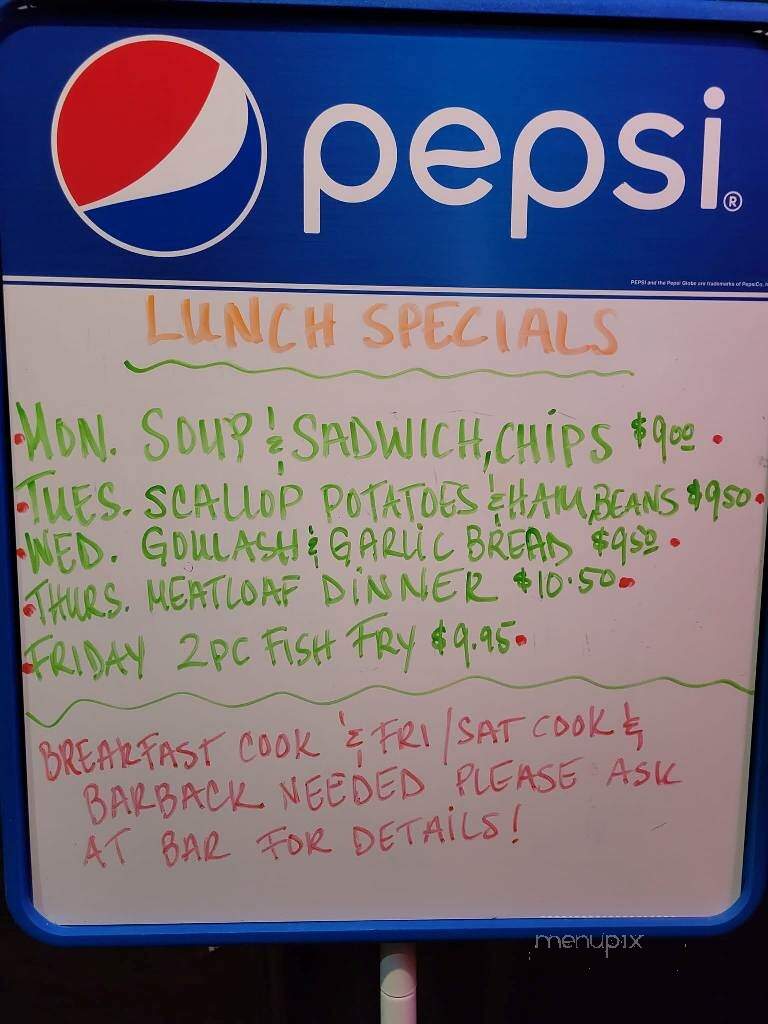 pepsi®
PEPSI and the Pepsi Globe are trademarks of PepsiCo,
LUNCH SPECIALS
•MON. SOUP & SADWICH, CHIPS $9.00 •
•TUES. SCALLOP POTATOES & HAM, BEANS $9.50 •
•WED. GOULASH & GARLIC BREAD $9.50 •
•THURS. MEATLOAF DINNER $10.50 •
•FRIDAY 2PC FISH FRY $9.95 •
BREAKFAST COOK & FRI/SAT COOK &
BARBACK NEEDED PLEASE ASK
AT BAR FOR DETAILS!
menupix